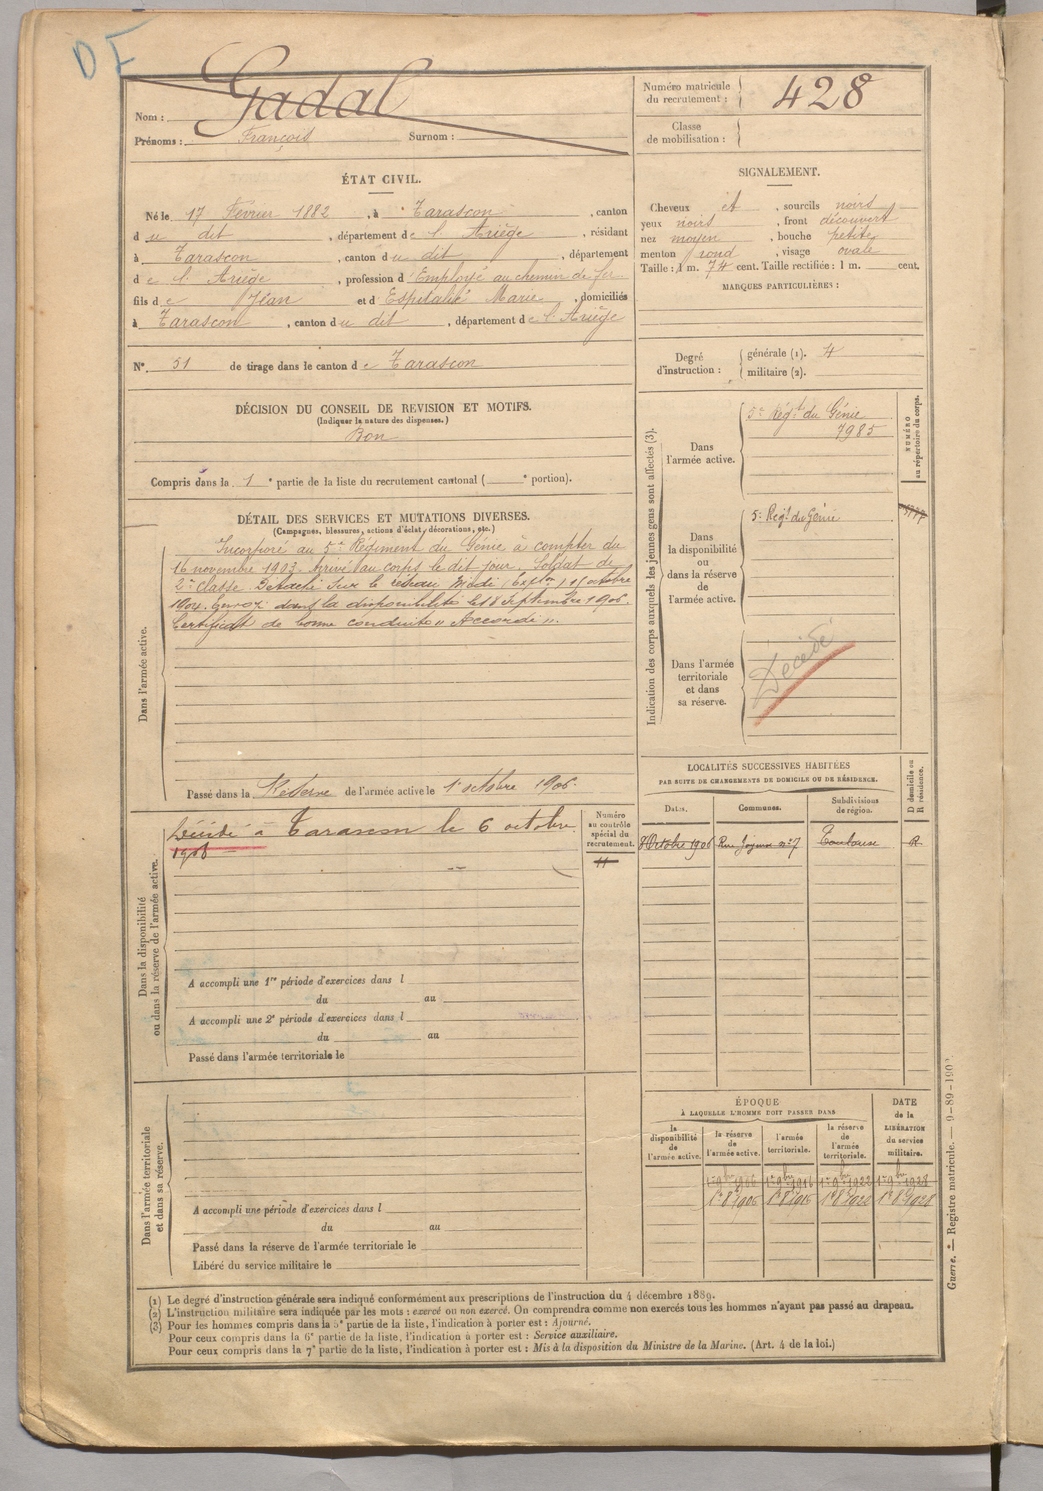 DF
Nom : Gadal
Prénoms : François Surnom :
Numéro matricule
du recrutement : 428
Classe
de mobilisation :
ÉTAT CIVIL.
Né le 17 Février 1882, à Tarascon, canton
du dit, département de l'Ariège, résidant
à Tarascon, canton du dit, département
de l'Ariège, profession d'Employé au chemin de fer
fils de Jean et d'Espitalié Marie, domiciliés
à Tarascon, canton du dit, département de l'Ariège
N° 51 de tirage dans le canton de Tarascon
DÉCISION DU CONSEIL DE REVISION ET MOTIFS.
(Indiquer la nature des dispenses.)
Bon
Compris dans la 1e partie de la liste du recrutement cantonal ( e portion).
DÉTAIL DES SERVICES ET MUTATIONS DIVERSES.
(Campagnes, blessures, actions d'éclat, décorations, etc.)
Dans l'armée active.
Incorporé au 5e Régiment du Génie à compter du
16 novembre 1903. Arrivé au corps le dit jour. Soldat de
2e classe. Détaché sur le réseau Midi (Expl.on) octobre
1904. Envoyé dans la disponibilité le 18 Septembre 1906.
Certificat de bonne conduite "Accordé".
Passé dans la Réserve de l'armée active le 1er octobre 1906.
Dans la disponibilité
ou dans la réserve de l'armée active.
Décédé à Tarascon le 6 octobre
1908
Numéro
au contrôle
spécial du
recrutement.
A accompli une 1re période d'exercices dans l
du au
A accompli une 2e période d'exercices dans l
du au
Passé dans l'armée territoriale le
Dans l'armée territoriale
et dans sa réserve.
A accompli une période d'exercices dans l
du au
Passé dans la réserve de l'armée territoriale le
Libéré du service militaire le
SIGNALEMENT.
Cheveux et, sourcils noirs
yeux noirs, front découvert
nez moyen, bouche petite
menton rond, visage ovale
Taille : 1 m. 74 cent. Taille rectifiée : 1 m. cent.
MARQUES PARTICULIÈRES :
Degré
d'instruction :
générale (1). 4
militaire (2).
Indication des corps auxquels les jeunes gens sont affectés (3).
NUMÉRO
au répertoire du corps.
Dans
l'armée active.
5e Régt du Génie
7985
Dans
la disponibilité
ou
dans la réserve
de
l'armée active.
5e Régt du Génie
Dans l'armée
territoriale
et dans
sa réserve.
Décédé
LOCALITÉS SUCCESSIVES HABITÉES
PAR SUITE DE CHANGEMENTS DE DOMICILE OU DE RÉSIDENCE.
Dates. Communes. Subdivisions
de région. D domicile ou
R résidence.
8 Octobre 1906 Rue n° 7 Toulouse R.
ÉPOQUE
À LAQUELLE L'HOMME DOIT PASSER DANS
la
disponibilité
de
l'armée active.
la réserve
de
l'armée active.
l'armée
territoriale.
la réserve
de
l'armée
territoriale.
DATE
de la
LIBÉRATION
du service
militaire.
1er 9bre 1906 1er 9bre 1916 1er 9bre 1922 1er 9bre 1928
1er 8bre 1906 1er 8bre 1916 1er 8bre 1922 1er 8bre 1928
(1) Le degré d'instruction générale sera indiqué conformément aux prescriptions de l'instruction du 4 décembre 1889.
(2) L'instruction militaire sera indiquée par les mots : exercé ou non exercé. On comprendra comme non exercés tous les hommes n'ayant pas passé au drapeau.
(3) Pour les hommes compris dans la 5e partie de la liste, l'indication à porter est : Ajourné.
Pour ceux compris dans la 6e partie de la liste, l'indication à porter est : Service auxiliaire.
Pour ceux compris dans la 7e partie de la liste, l'indication à porter est : Mis à la disposition du Ministre de la Marine. (Art. 4 de la loi.)
Guerre. — Registre matricule. — 9-89-190